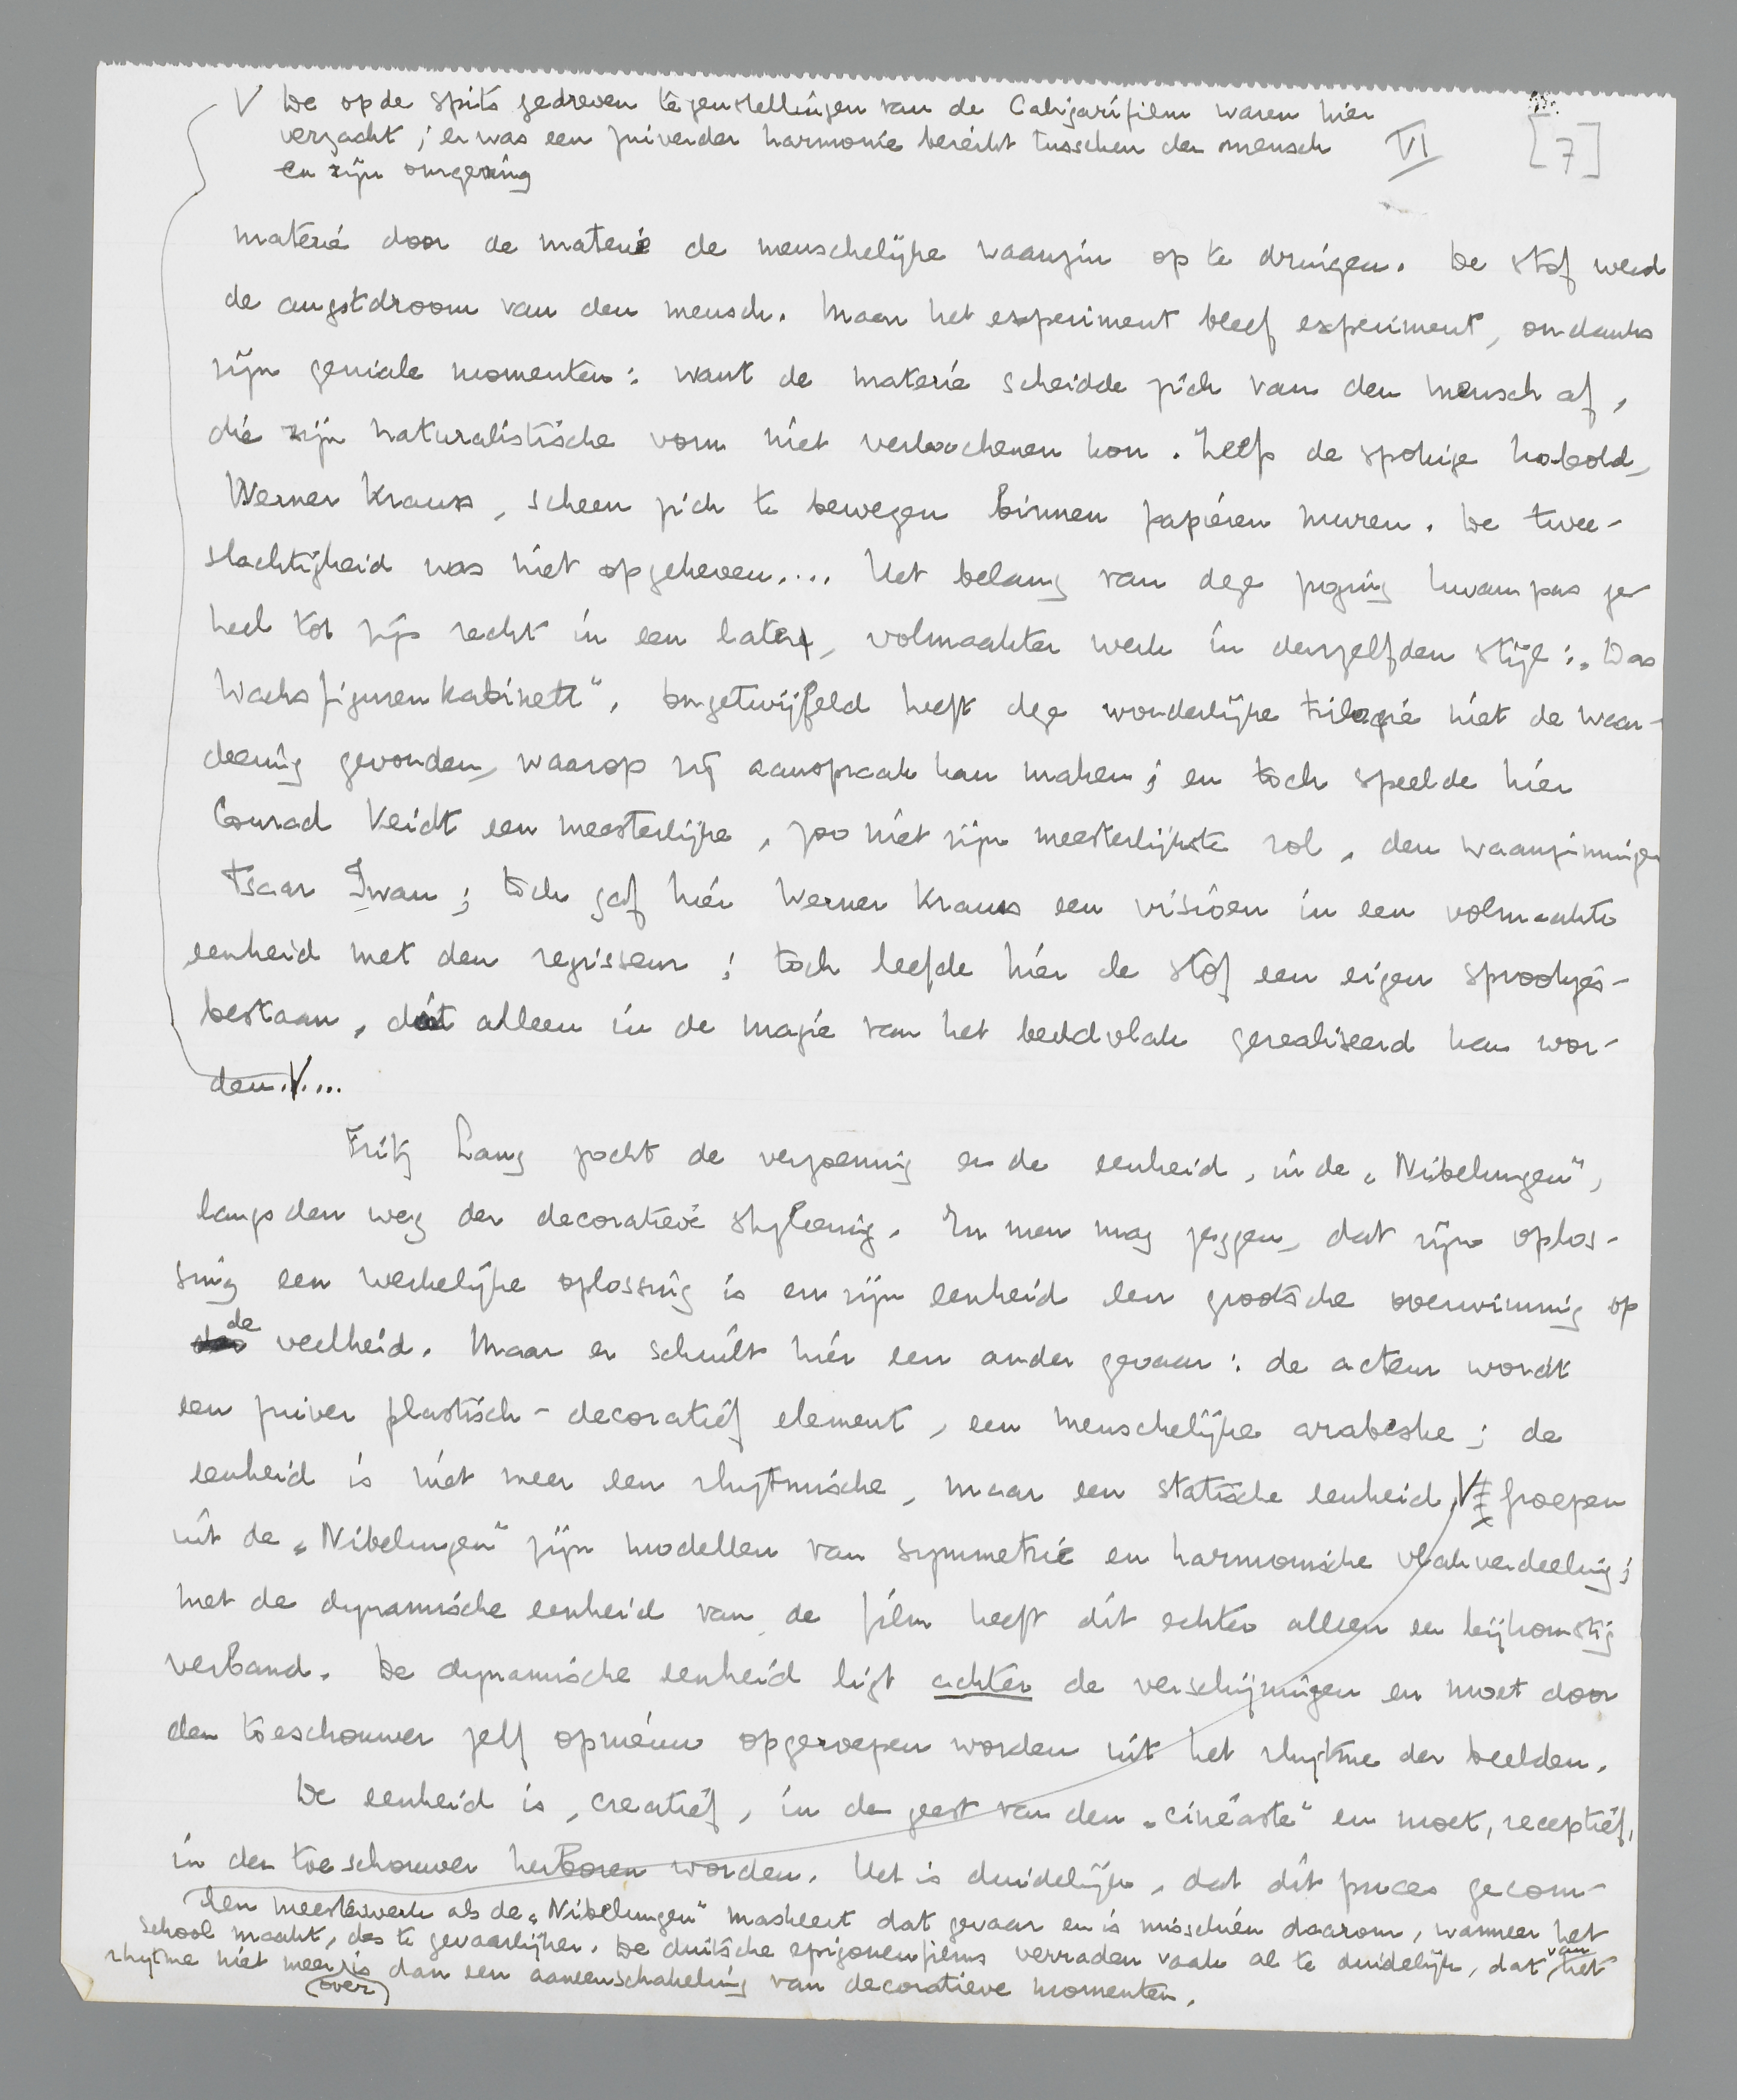 V De op de spits gedreven tegenstellingen van de Caligarifilm waren hier
verzacht; er was een zuiverder harmonie bereikt tusschen den mensch
en zijn omgeving
VI
[7]
materie door de materie de menschelijke waanzin op te dringen. De stof werd
de angstdroom van den mensch. Maar het experiment bleef experiment, ondanks
zijn geniale momenten: want de materie scheidde zich van den mensch af,
die zijn naturalistische vorm niet verloochenen kon. Zelfs de spokige kobold,
Werner Krauss, scheen zich te bewegen binnen papieren muren. De twee-
slachtigheid was niet opgeheven.... Het belang van deze poging kwam pas ge-
heel tot zijn recht in een later, volmaakter werk in denzelfden stijl: „Das
Wachsfigurenkabinett". Ongetwijfeld heeft deze wonderlijke trilogie niet de waar-
deering gevonden, waarop zij aanspraak kan maken; en toch speelde hier
Conrad Veidt een meesterlijke, zoo niet zijn meesterlijkste rol, den waanzinnigen
Tsaar Iwan; toch gaf hier Werner Krauss een visioen in een volmaakte
eenheid met den regisseur; toch leefde hier de stof een eigen sprookjes-
bestaan, dat alleen in de magie van het beeldvlak gerealiseerd kan wor-
den.V...
Fritz Lang zocht de verzoening en de eenheid, in de „Nibelungen",
langs den weg der decoratieve styleering. En men mag zeggen, dat zijn oplos-
sing een werkelijke oplossing is en zijn eenheid een grootsche overwinning op
de
veelheid. Maar er schuilt hier een ander gevaar: de acteur wordt
een zuiver plastisch-decoratief element, een menschelijke arabeske; de
eenheid is niet meer een rhytmische, maar een statische eenheid. V groepen
uit de „Nibelungen" zijn modellen van symmetrie en harmonische vlakverdeeling;
met de dynamische eenheid van de film heeft dit echter alleen een bijkomstig
verband. De dynamische eenheid ligt achter de verschijningen en moet door
den toeschouwer zelf opnieuw opgeroepen worden uit het rhytme der beelden.
De eenheid is, creatief, in den geest van den „cinéaste" en moet, receptief,
in den toeschouwer herboren worden. Het is duidelijk, dat dit proces gecom-
Een meesterwerk als de „Nibelungen" maskeert dat gevaar en is misschien daarom, wanneer het
school maakt, des te gevaarlijker. De duitsche epigonenfilms verraden vaak al te duidelijk, dat van het
rhytme niet meer over is dan een aaneenschakeling van decoratieve momenten.